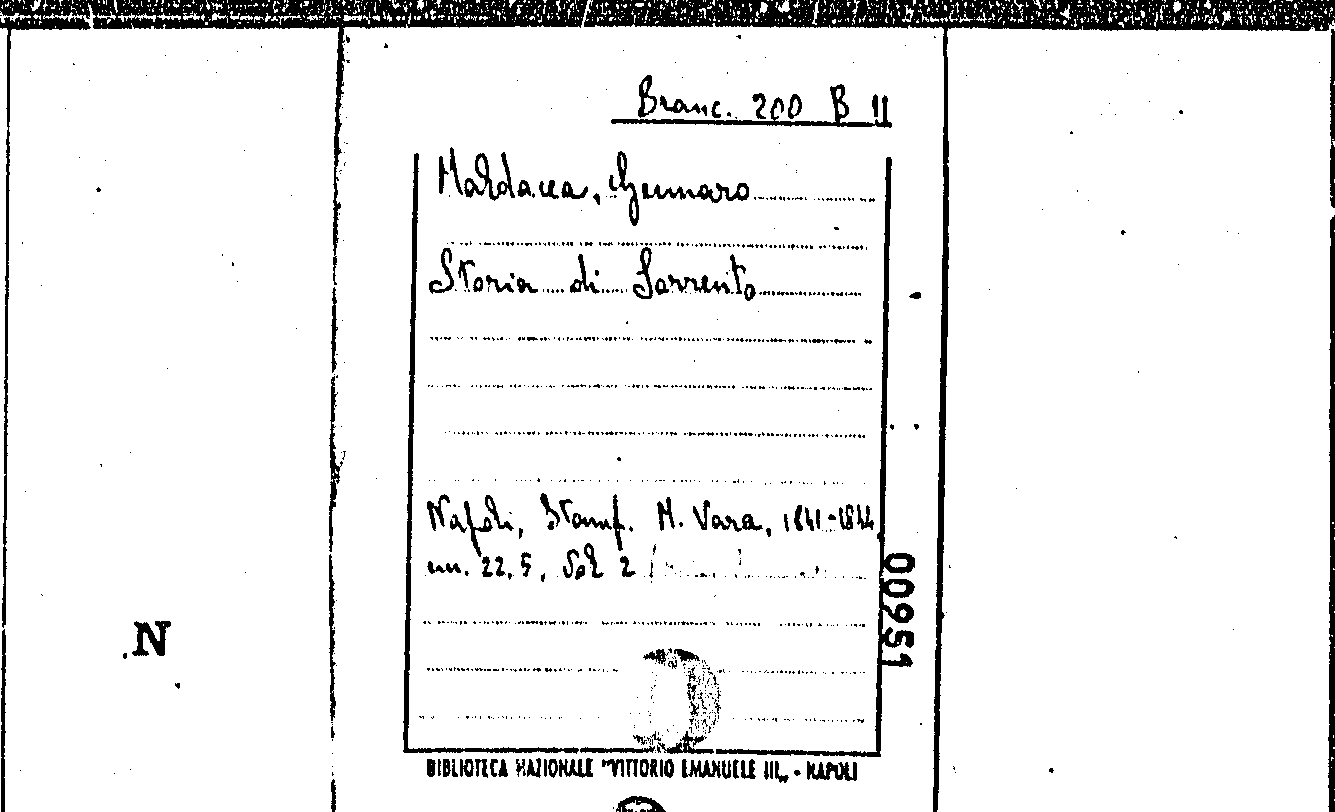 Branc. 200 B 11
Maldacea, Gennaro
Storia di Sorrento
Napoli, Stamp. M. Vara, 1841-1844
cm. 22,5, Vol 2
00951
N
BIBLIOTECA NAZIONALE "VITTORIO EMANUELE III„ - NAPOLI